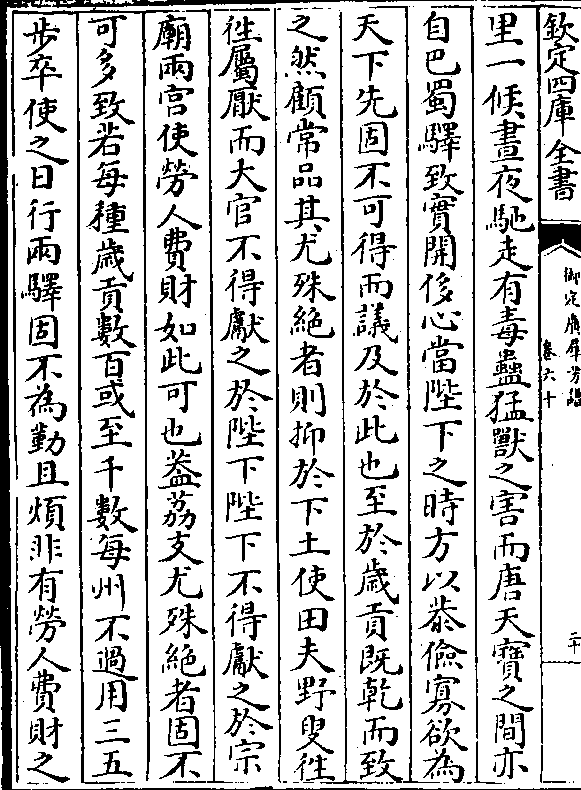 欽定四庫全書
御定廣羣芳譜
卷六十
二十
里一候晝夜馳走有毒蟲猛獸之害而唐天寶之間亦
自巴蜀驛致實開侈心當陛下之時方以恭儉寡欲為
天下先固不可得而議及於此也至於歲貢既乾而致
之然顧常品其尤殊絶者則抑於下土使田夫野叟徃
徃屬厭而大官不得獻之於陛下陛下不得獻之於宗
廟兩宫使勞人費財如此可也葢荔支尤殊絶者固不
可多致若每種歲貢數百或至千數每州不過用三五
步卒使之日行兩驛固不為勤且煩非有勞人費財之